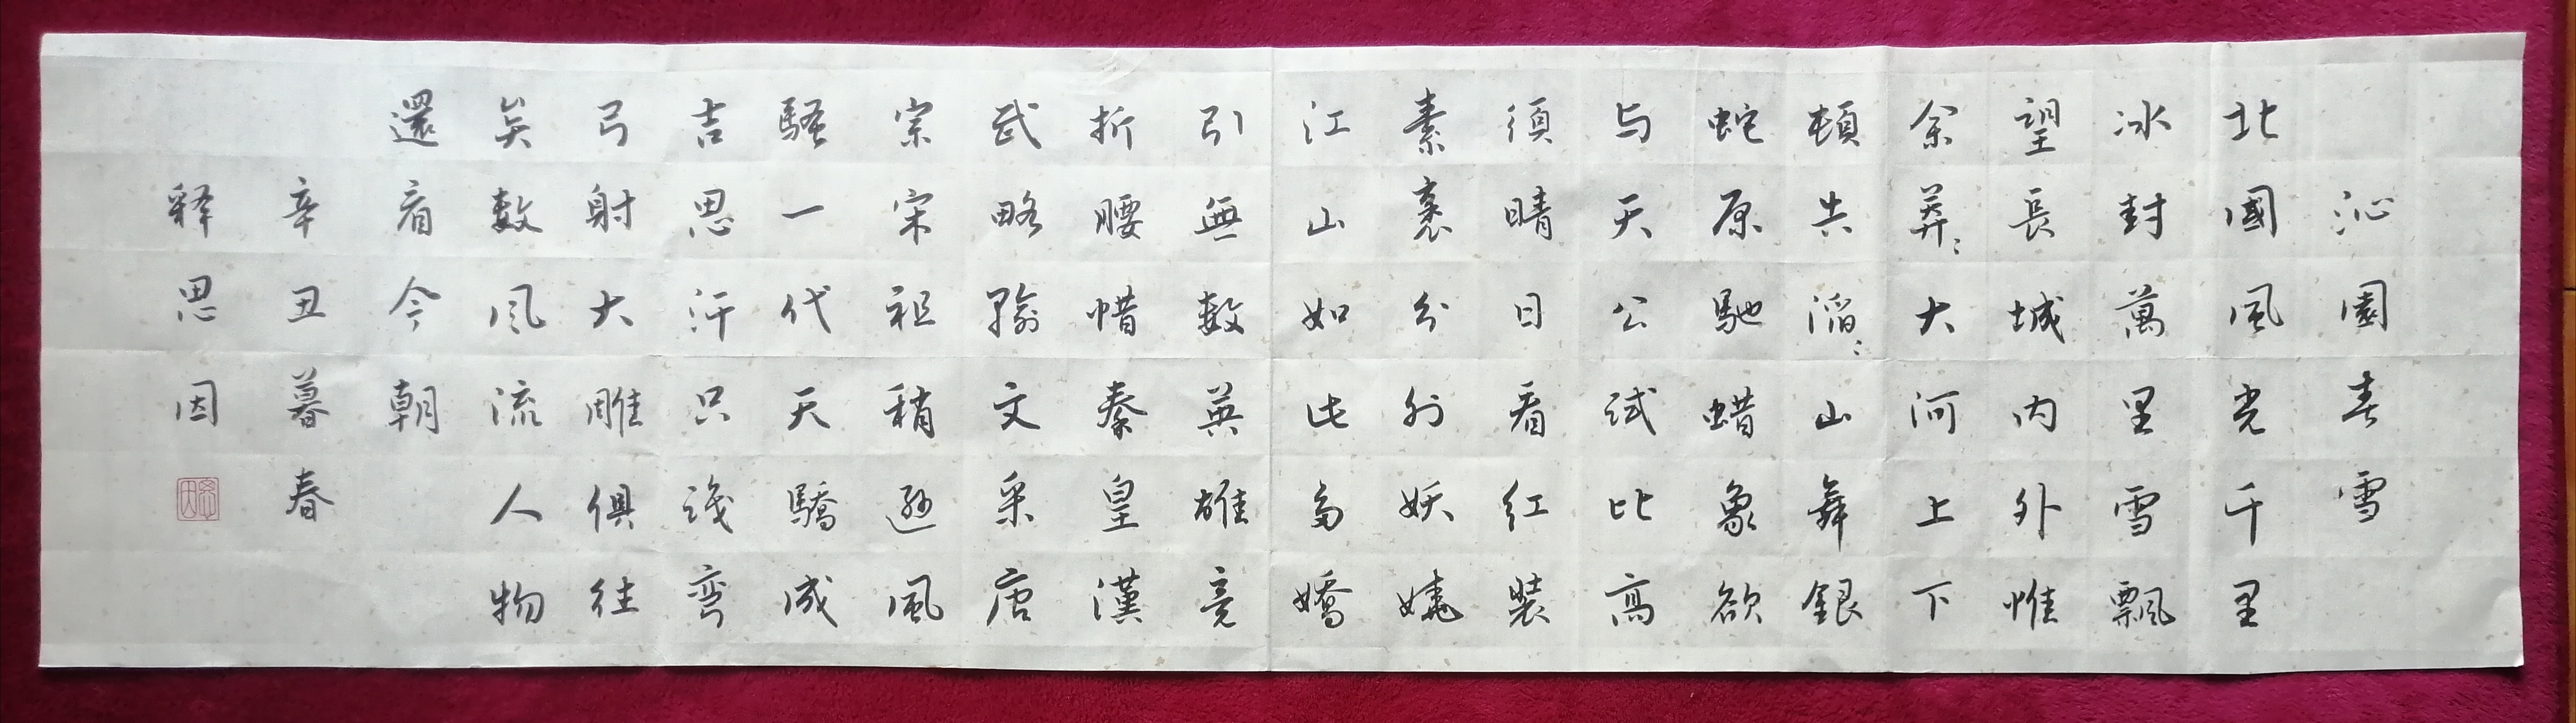 沁園春雪
北國風光千里
冰封萬里雪飄
望長城内外惟
余莽〻大河上下
頓失滔〻山舞銀
蛇原馳蜡象欲
与天公試比高
須晴日看红裝
素裹分外妖嬈
江山如此多嬌
引無數英雄竞
折腰惜秦皇漢
武略輸文采唐
宗宋祖稍遜風
騷一代天驕成
吉思汗只識彎
弓射大雕俱往
矣數風流人物
還看今朝
辛丑暮春
释思因